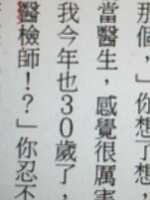 那個，」你想了想，
當醫生，感覺很厲害
我今年也30歲了，
醫檢師！？」你忍不